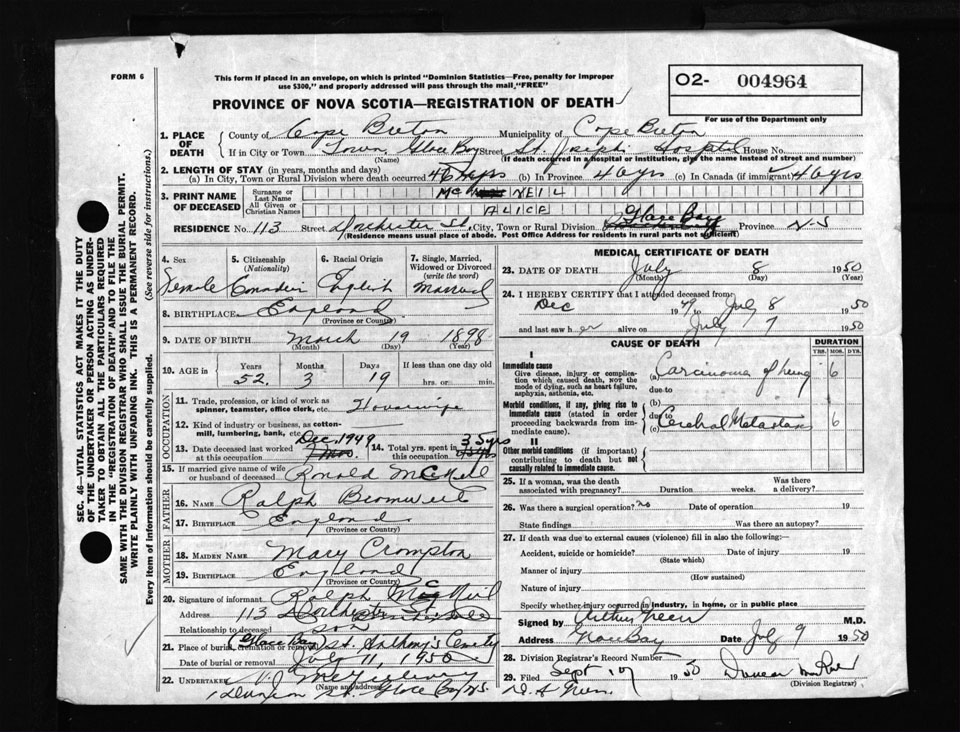 FORM 6
This form if placed in an envelope, on which is printed "Dominion Statistics—Free, penalty for improper
use $300," and properly addressed will pass through the mail, "FREE"
O2- 004964
For use of the Department only
PROVINCE OF NOVA SCOTIA—REGISTRATION OF DEATH
1. PLACE OF DEATH
County of Cape Breton Municipality of Cape Breton
If in City or Town Town Glace Bay Street St. Joseph's Hospital House No.
(Name) (If death occurred in a hospital or institution, give the name instead of street and number)
2. LENGTH OF STAY (in years, months and days)
(a) In City, Town or Rural Division where death occurred 46 yrs (b) In Province 46 yrs (c) In Canada (if immigrant) 46 yrs
3. PRINT NAME OF DECEASED
Surname or Last Name McNEIL
All Given or Christian Names ALICE
RESIDENCE No. 113 Street Dorchester St. City, Town or Rural Division Glace Bay Province N-S
(Residence means usual place of abode. Post Office Address for residents in rural parts not sufficient)
4. Sex Female
5. Citizenship (Nationality) Canadian
6. Racial Origin English
7. Single, Married, Widowed or Divorced (write the word) Married
8. BIRTHPLACE England
(Province or Country)
9. DATE OF BIRTH March 19 1898
(Month) (Day) (Year)
10. AGE in Years Months Days If less than one day old
52 3 19 hrs. or min.
OCCUPATION
11. Trade, profession, or kind of work as spinner, teamster, office clerk, etc. Housewife
12. Kind of industry or business, as cotton-mill, lumbering, bank, etc.
13. Date deceased last worked at this occupation Dec 1949
14. Total yrs. spent in this occupation 35 yrs
15. If married give name of wife or husband of deceased Ronald McNeil
FATHER
16. NAME Ralph
17. BIRTHPLACE England
(Province or Country)
MOTHER
18. MAIDEN NAME Mary Crompton
19. BIRTHPLACE England
(Province or Country)
20. Signature of informant Ralph McNeil
Address 113 Dorchester St
Relationship to deceased son
21. Place of burial, cremation or removal Glace Bay St. Anthony's Cemetery
Date of burial or removal July 11, 1950
22. UNDERTAKER V. J. McGillivray
(Name and address)
St. Glace Bay NS.
MEDICAL CERTIFICATE OF DEATH
23. DATE OF DEATH July 8 1950
(Month) (Day) (Year)
24. I HEREBY CERTIFY that I attended deceased from:
Dec 1949 to July 8 1950
and last saw her alive on July 7 1950
CAUSE OF DEATH DURATION
YRS. MOS. DYS.
I
Immediate cause
Give disease, injury or complication which caused death, NOT the mode of dying, such as heart failure, asphyxia, asthenia, etc.
(a) Carcinoma of lung 6
due to
Morbid conditions, if any, giving rise to immediate cause (stated in order proceeding backwards from immediate cause).
(b)
due to
(c) Cerebral Metastases 6
II
Other morbid conditions (if important) contributing to death but not causally related to immediate cause.
25. If a woman, was the death associated with pregnancy? Duration weeks. Was there a delivery?
26. Was there a surgical operation? no Date of operation 19
State findings Was there an autopsy?
27. If death was due to external causes (violence) fill in also the following:
Accident, suicide or homicide? Date of injury 19
(State which)
Manner of injury
(How sustained)
Nature of injury
Specify whether injury occurred in industry, in home, or in public place
Signed by Arthur Green M.D.
Address Glace Bay Date July 9 1950
28. Division Registrar's Record Number
29. Filed Sept 19 50
(Division Registrar)
SEC. 46—VITAL STATISTICS ACT MAKES IT THE DUTY
OF THE UNDERTAKER OR PERSON ACTING AS UNDERTAKER TO OBTAIN ALL THE PARTICULARS REQUIRED
IN THE "REGISTRATION OF DEATH" AND TO FILE THE
SAME WITH THE DIVISION REGISTRAR WHO SHALL ISSUE THE BURIAL PERMIT.
WRITE PLAINLY WITH UNFADING INK. THIS IS A PERMANENT RECORD.
Every item of information should be carefully supplied. (See reverse side for instructions.)